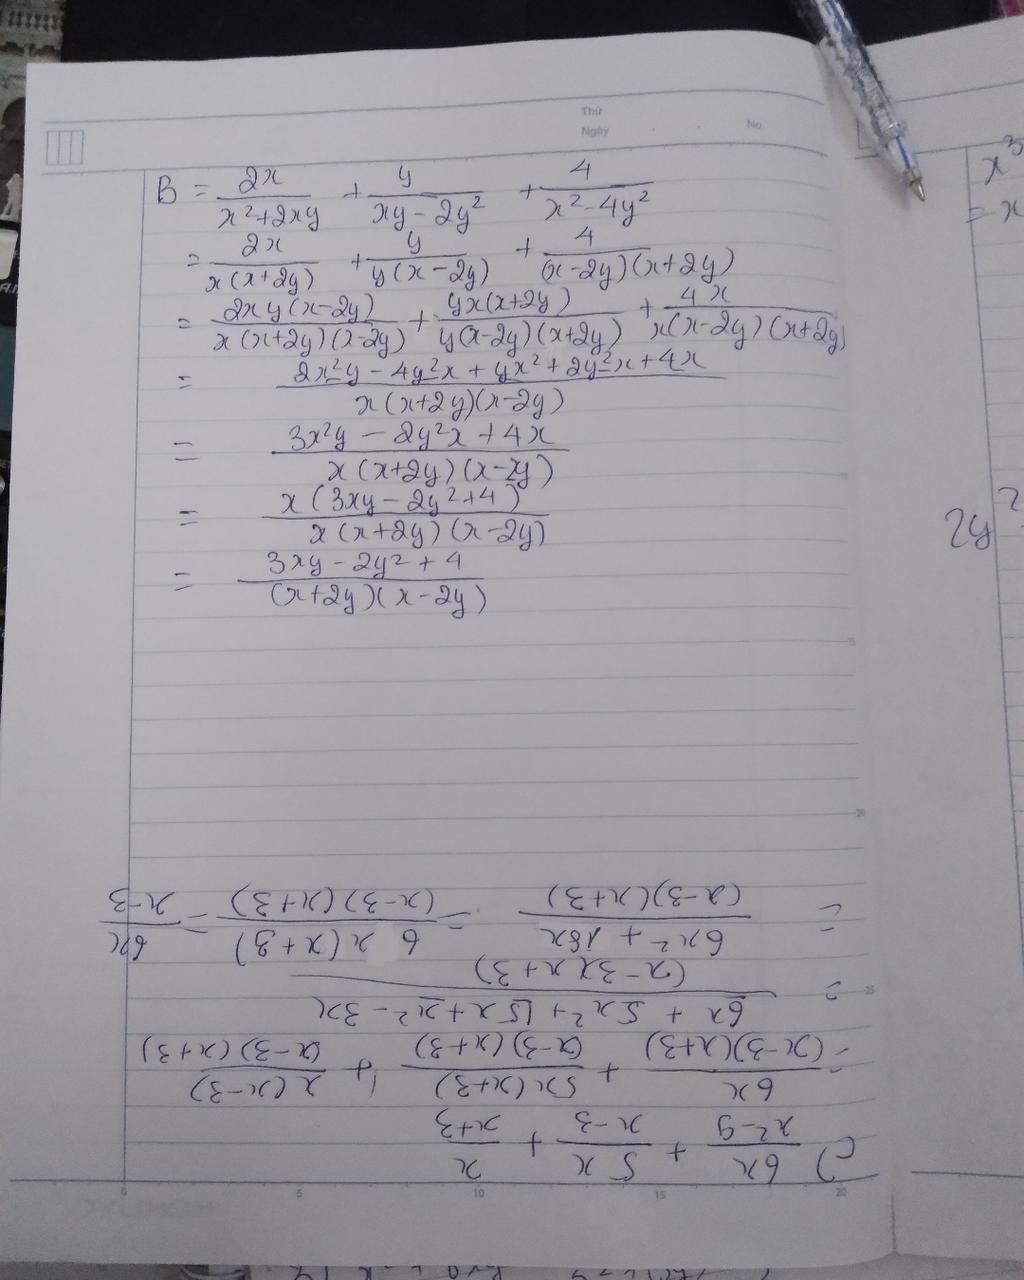 Thứ
Ngày No
B = 2x/(x²+2xy) + y/(xy-2y²) + 4/(x²-4y²)
= 2x/(x(x+2y)) + y/(y(x-2y)) + 4/((x-2y)(x+2y))
= 2xy(x-2y)/(x(x+2y)(x-2y)) + yx(x+2y)/(y(x-2y)(x+2y)) + 4x/(x(x-2y)(x+2y))
= (2x²y - 4y²x + yx² + 2y²x + 4x)/(x(x+2y)(x-2y))
= (3x²y - 2y²x + 4x)/(x(x+2y)(x-2y))
= x(3xy - 2y² + 4)/(x(x+2y)(x-2y))
= (3xy - 2y² + 4)/((x+2y)(x-2y))
c) 6x/(x²-9) + 5x/(x-3) + x/(x+3)
= 6x/((x-3)(x+3)) + 5x(x+3)/((x-3)(x+3)) + x(x-3)/((x-3)(x+3))
= (6x + 5x² + 15x + x² - 3x)/((x-3)(x+3))
= (6x² + 18x)/((x-3)(x+3)) = 6x(x+3)/((x-3)(x+3)) = 6x/(x-3)
0 5 10 15 20
x³
= x
2y²